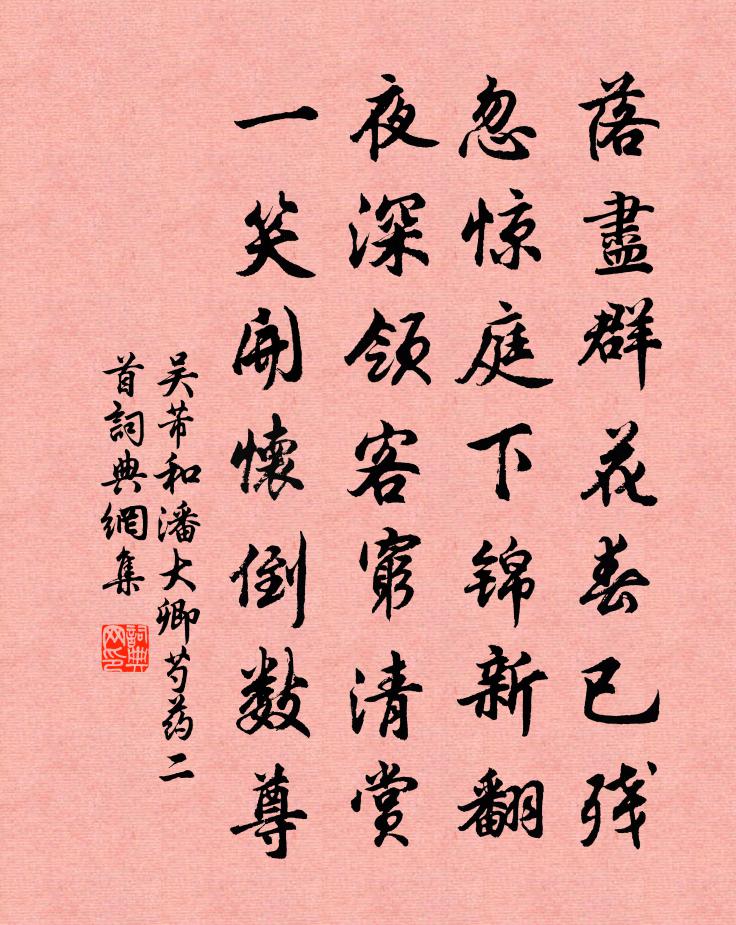 落盡群花春已残
忽惊庭下锦新翻
夜深领客窮清赏
一笑開懷倒数尊
吴芾和潘大卿芍药二
首詞典網集
詞典网印